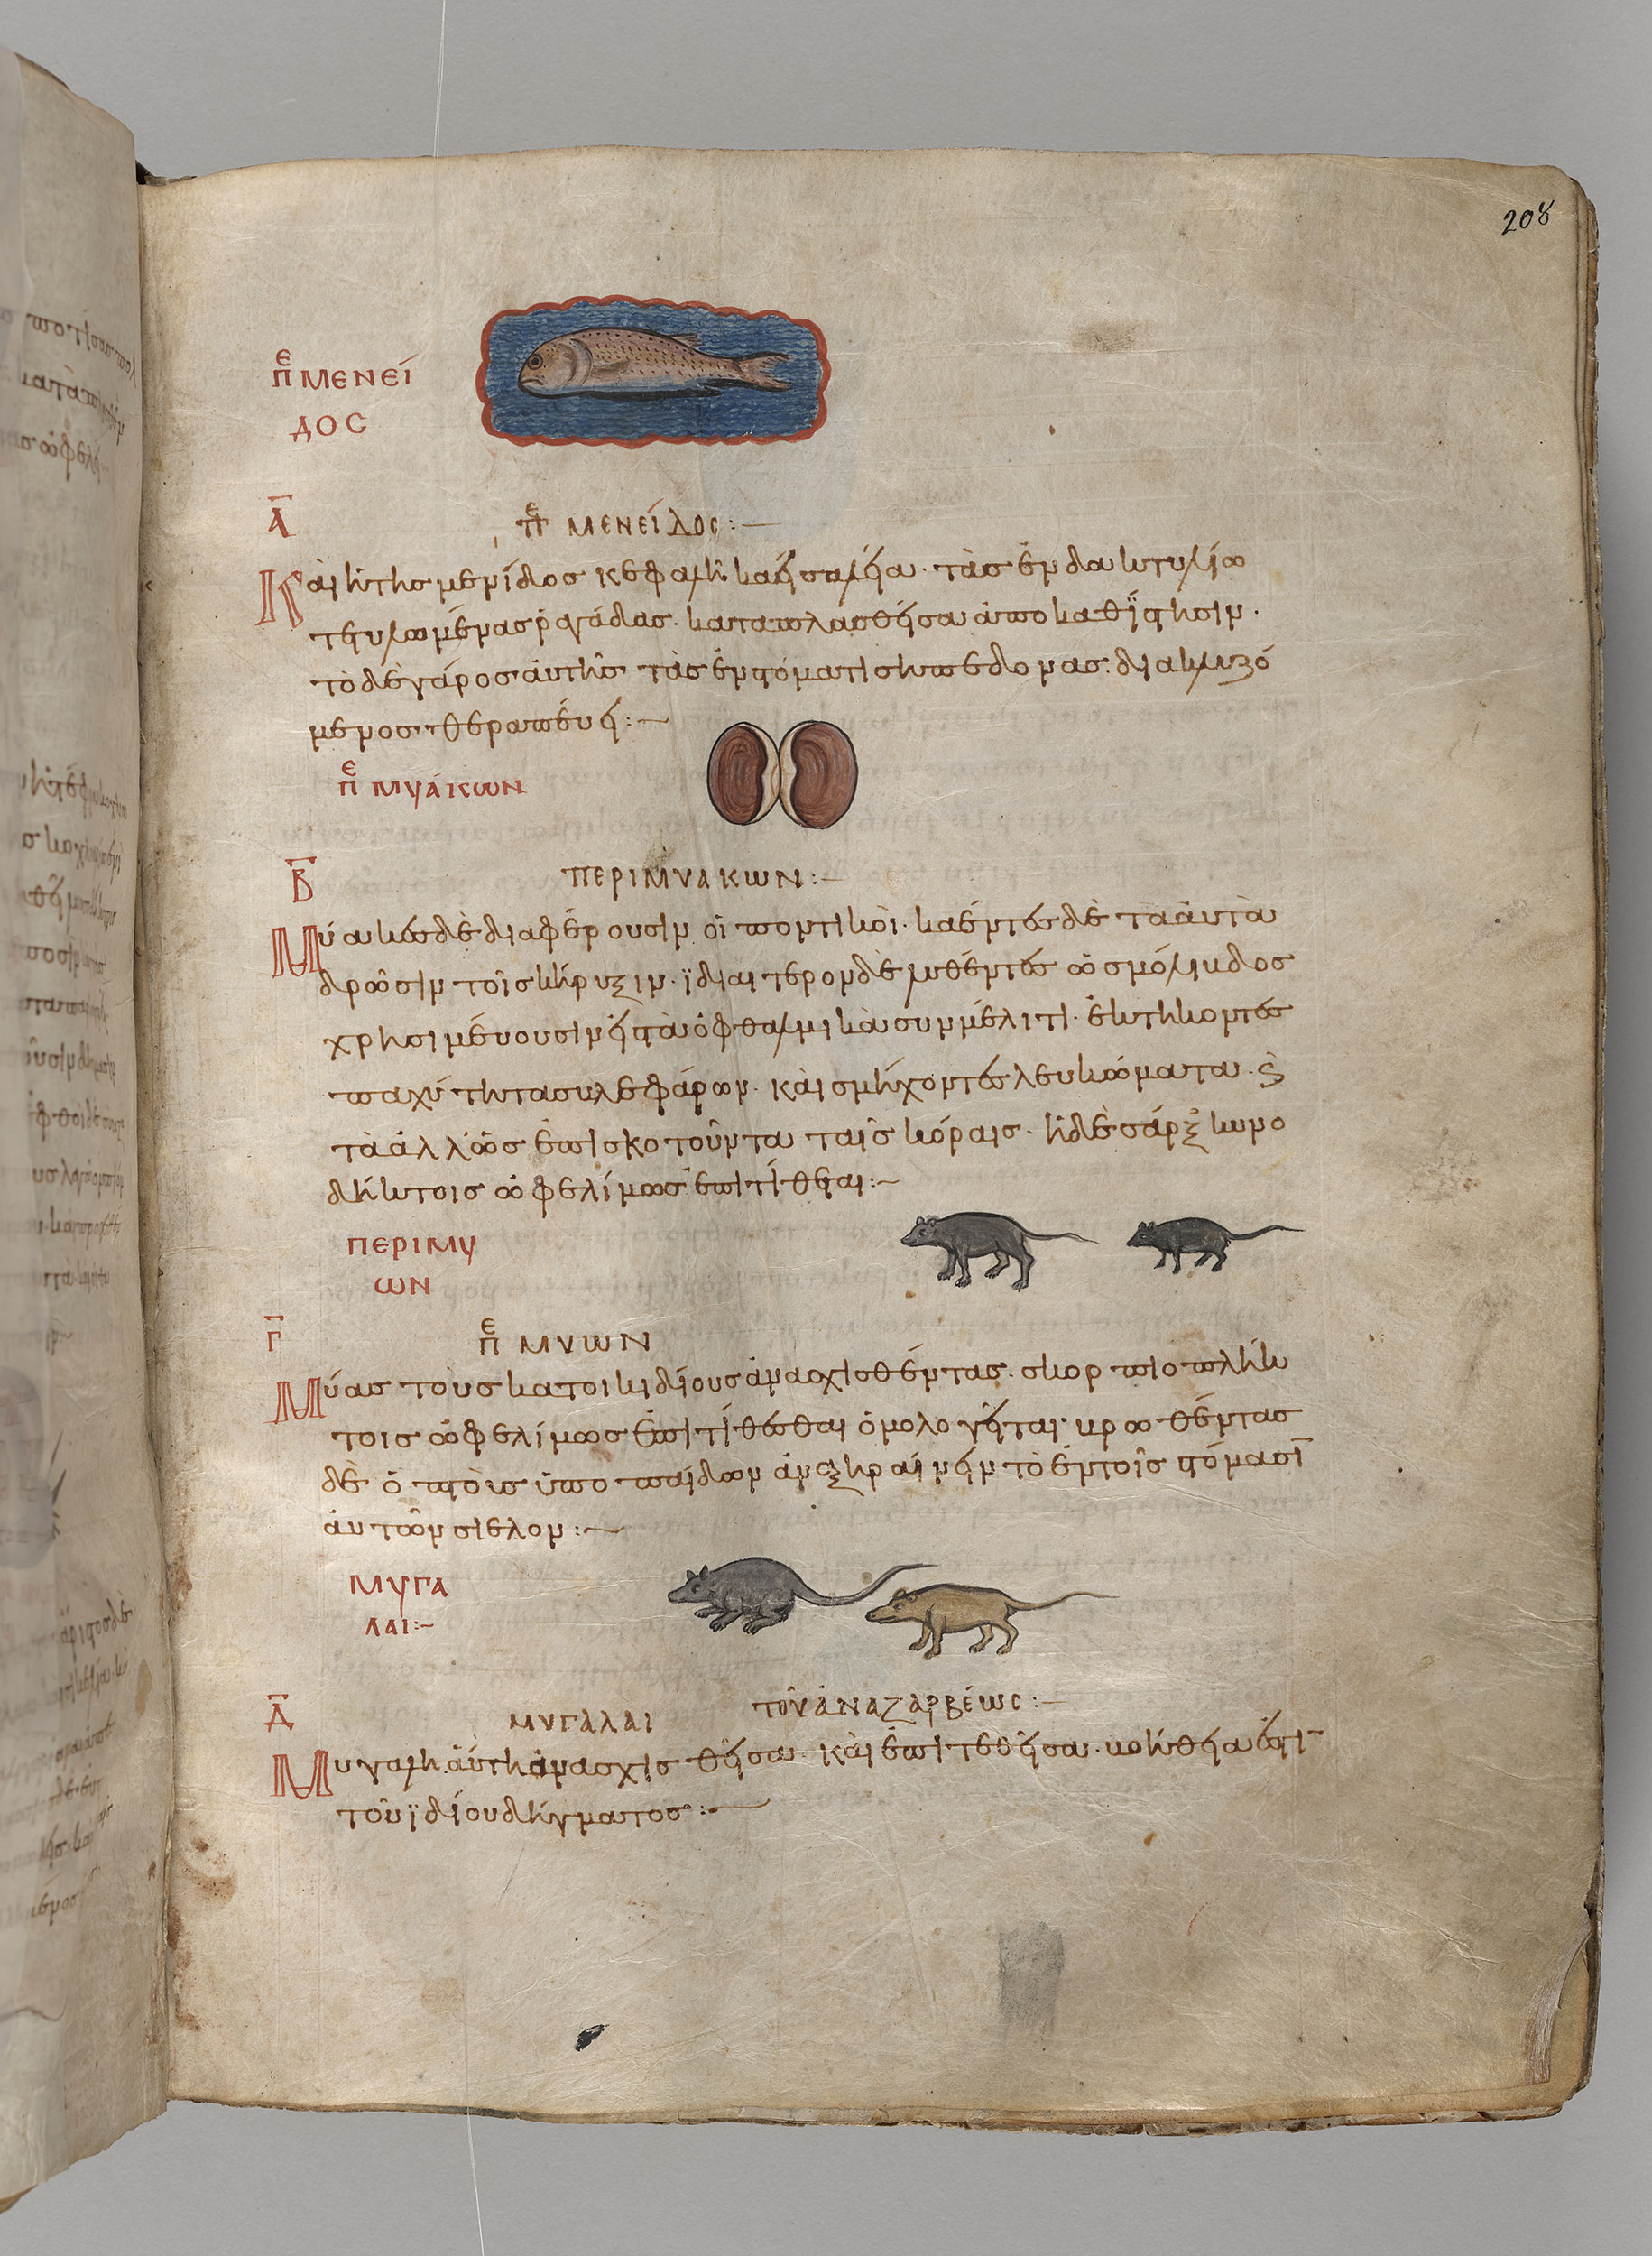 208
π̅ε ΜΕΝΕΊ
ΔΟC
Α̅
π̅ε ΜΕΝΕΊΔΟC:—
Καὶ ἡ τῆσ μενίδοσ κεφαλὴ καεῖσα λεῖα· τὰσ ἐν δακτυλίω
τετυλωμένασ ῥαγάδασ· καταπλασθεῖσα ἀποκαθΐστησιν·
τὸ δὲ γάροσ αὐτῆσ τὰσ ἐν στόματι σηπεδονασ· διακλυζό
μενοσ θεραπεύει:—
π̅ε ΜΥΆΚΩΝ
Β̅
ΠΕΡΙ ΜΥΑΚΩΝ:—
Μύακεσ δὲ διαφέρουσιν οἱ ποντικοὶ· καέντεσ δὲ τὰ ἀυτὰ
δρῶσιν τοῖσ κήρυξιν· ϊδιαιτερον δὲ πλυθέντεσ ὡσ μόλιβδοσ
χρησιμέυουσιν εἰσ τὰ ὀφθαλμικὰ συν μέλιτι· ἐκτήκοντεσ
παχύτητασ βλεφάρων· καὶ σμήχοντεσ λευκώματα· ϗ̀
τὰ ἄλλωσ ἐπισκοτοῦντα ταῖσ κόραισ· ἡ δὲ σάρξ κυνο
δήκτοισ ὠφελίμωσ ἐπιτίθεται:—
ΠΕΡΙ ΜΥ
ΩΝ
Γ̅
π̅ε ΜΥΩΝ
Μύασ τοὺσ κατοικιδίουσ ἀνασχισθέντασ· σκορπιοπλήκ
τοισ ὠφελίμωσ ἐπιτίθεσθαι ὁμολογεῖται· βρωθέντασ
δὲ ὀπτοὶσ ὑπο παίδων ἀναξηραίνειν τὸ ἐν τοῖσ στόμασῑ
ἀυτῶν σίελον:—
ΜΥΓΑ
ΛΑΙ:—
Δ̅
ΜΥΓΑΛΑΙ ΤΟΥ̂ ἈΝΑΖΑΡΒΈΩC:—
Μυγαλη ἀύτη ἀνασχισθεῖσα· καὶ ἐπιτεθεῖσα· βοήθεια ἐστὶ
τοῦ ϊδίου δήγματοσ:—